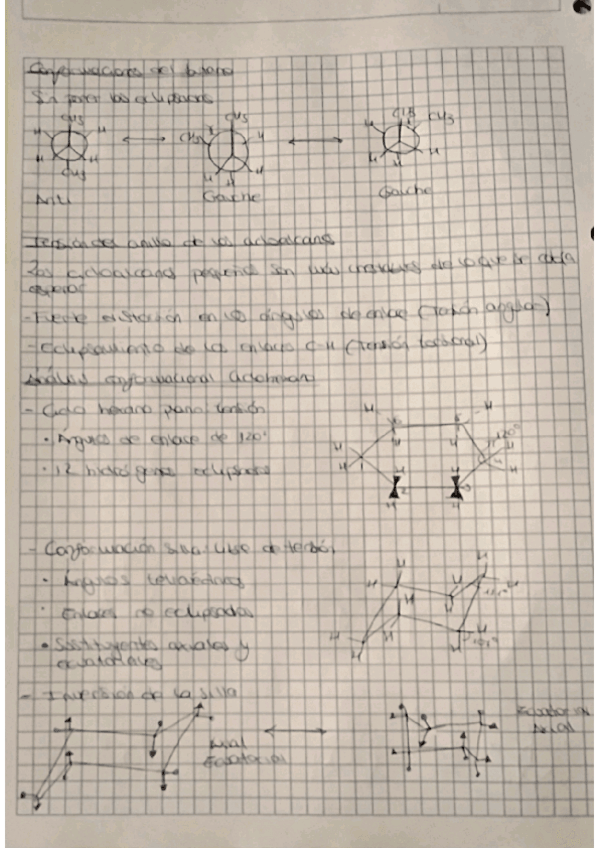 Conformaciones del butano
Sin poner los eclipsados
CH3 CH3 CH3 CH3
H H CH3 H H
H H H H H H
CH3 H H
Anti Gauche Gauche
Tension del anillo de los cicloalcanos
Los cicloalcanos pequeños son más inestables de lo que se
esperar
- Fuerte distorsión en los ángulos de enlace (Tensión angular)
- Eclipsamiento de los enlaces C-H (Tensión torsional)
Análisis conformacional ciclohexano
- Ciclo hexano plano: tensión
• Ángulos de enlace de 120°
• 12 hidrógenos eclipsados
H H
H H 120°
H H
H H
H H
- Conformación silla: libre de tensión
• Ángulos
• Enlaces no eclipsados
• Sustituyentes axiales y
ecuatoriales
- Inversión de la silla
Axial
Ecuatorial
Ecuatorial
Axial